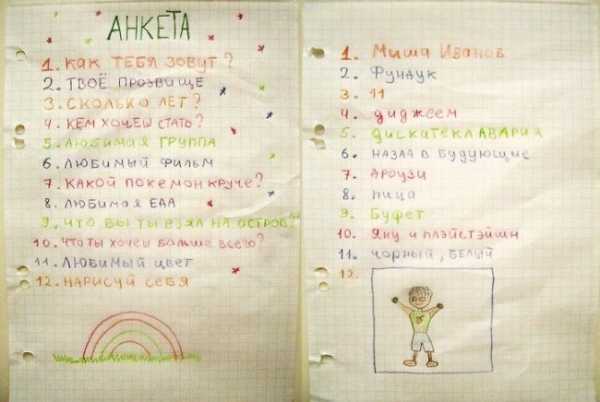 АНКЕТА
1. КАК ТЕБЯ ЗОВУТ?
2. ТВОЁ ПРОЗВИЩЕ
3. СКОЛЬКО ЛЕТ?
4. КЕМ ХОЧЕШ СТАТЬ?
5. ЛЮБИМАЯ ГРУППА
6. ЛЮБИМЫЙ ФИЛЬМ
7. КАКОЙ ПОКЕМОН КРУЧЕ?
8. ЛЮБИМАЯ ЕАА
9. ЧТО БЫ ТЫ ВЗЯЛ НА ОСТРОВ?
10. ЧТО ТЫ ХОЧЕШ БОЛЬШЕ ВСЕГО?
11. ЛЮБИМЫЙ ЦВЕТ
12. НАРИСУЙ СЕБЯ
1. Миша Иванов
2. Фундук
3. 11
4. диджеем
5. ДИСКАТЕКА АВАРИЯ
6. НАЗАД В БУДУЮЩИЕ
7. АРОУЗИ
8. пица
9. Буфет
10. Яну и плэйстэйшн
11. чорный, БЕЛЫЙ
12.